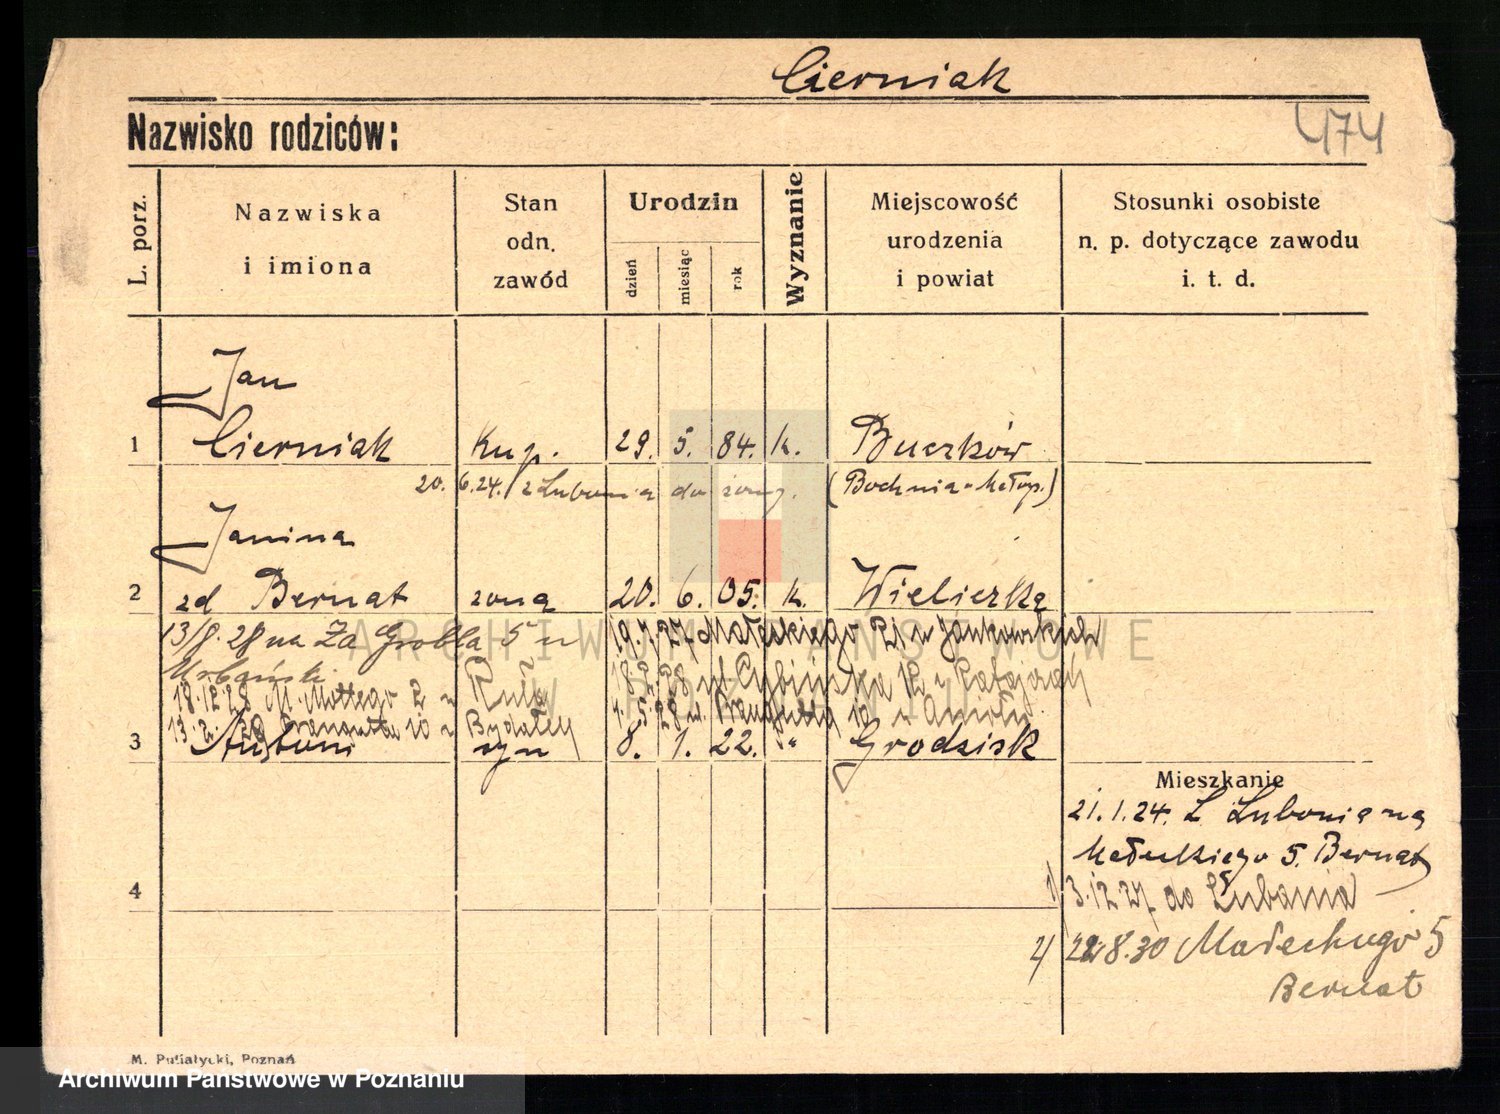 Cierniak
Nazwisko rodziców:
474
L. porz.
Nazwiska
i imiona
Stan
odn.
zawód
Urodzin
dzień
miesiąc
rok
Wyznanie
Miejscowość
urodzenia
i powiat
Stosunki osobiste
n. p. dotyczące zawodu
i. t. d.
Jan
1 Cierniak Kup. 29. 5. 84. k. Buczków
20. 6.24. z Lubonia do żony. (Bochnia - Małop.)
Janina
2 zd Bernat żona 20. 6. 05. k. Wieliczka
13/8. 28 na Za Groblą 5 u 19.7.27 Małeckiego 21 u Jankowskich
18.12.28 M. Mottego 2 u
13. 2. 29
3 Antoni syn 8. 1. 22. " Grodzisk
Mieszkanie
21.1.24. Z Lubonia na
Małeckiego 5. Bernat
1) 3.12 27 do Lubonia
4
2) 22 8.30 Małeckiego 5
Bernat
M. Putiatycki, Poznań
ARCHIWUM PAŃSTWOWE
W POZNANIU
Archiwum Państwowe w Poznaniu